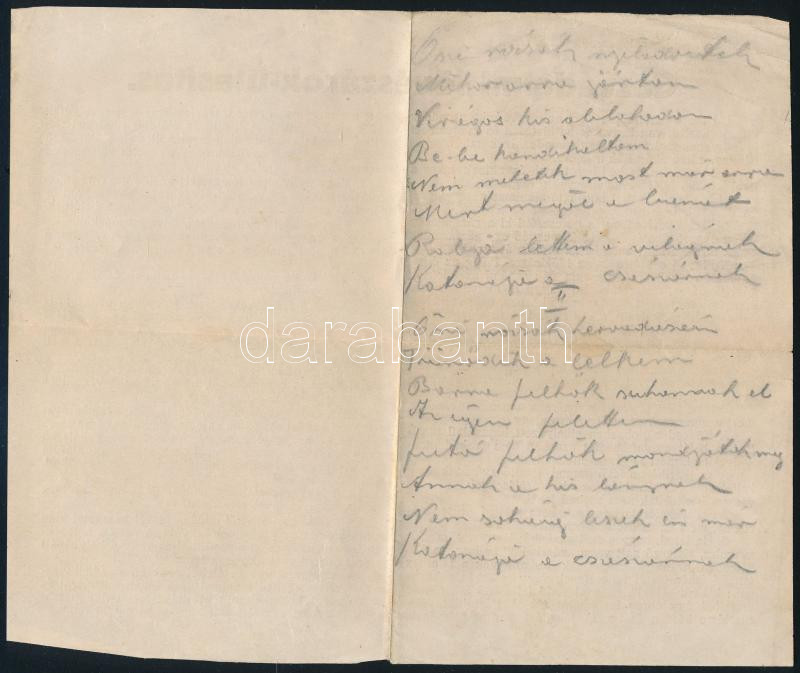 Őszi rózsák nyiladoztak
Mikor arra jártam
Virágos kis ablakodon
Be-be kandikáltam
Nem metetik most már erre
Mert megöl a bánat
Rabja lettem a világnak
Katonája a császárnak
II
Őszi rózsák hervadásán
a lelkem
Barna felhők suhannak el
Az égen felettem
futó felhők mondjátok meg
Annak a kis lánynak
Nem sokáig leszek én már
Katonája a császárnak
darabanth